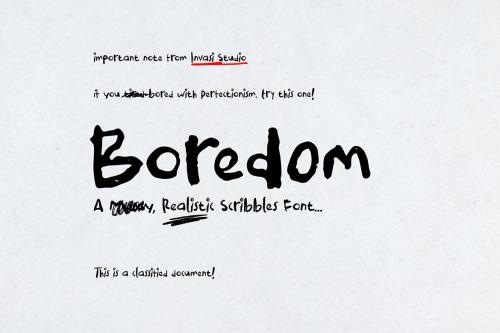 important note from Invasi Studio
if you bored with perfectionism. try this one!
Boredom
A Realistic Scribbles Font...
This is a classified document!